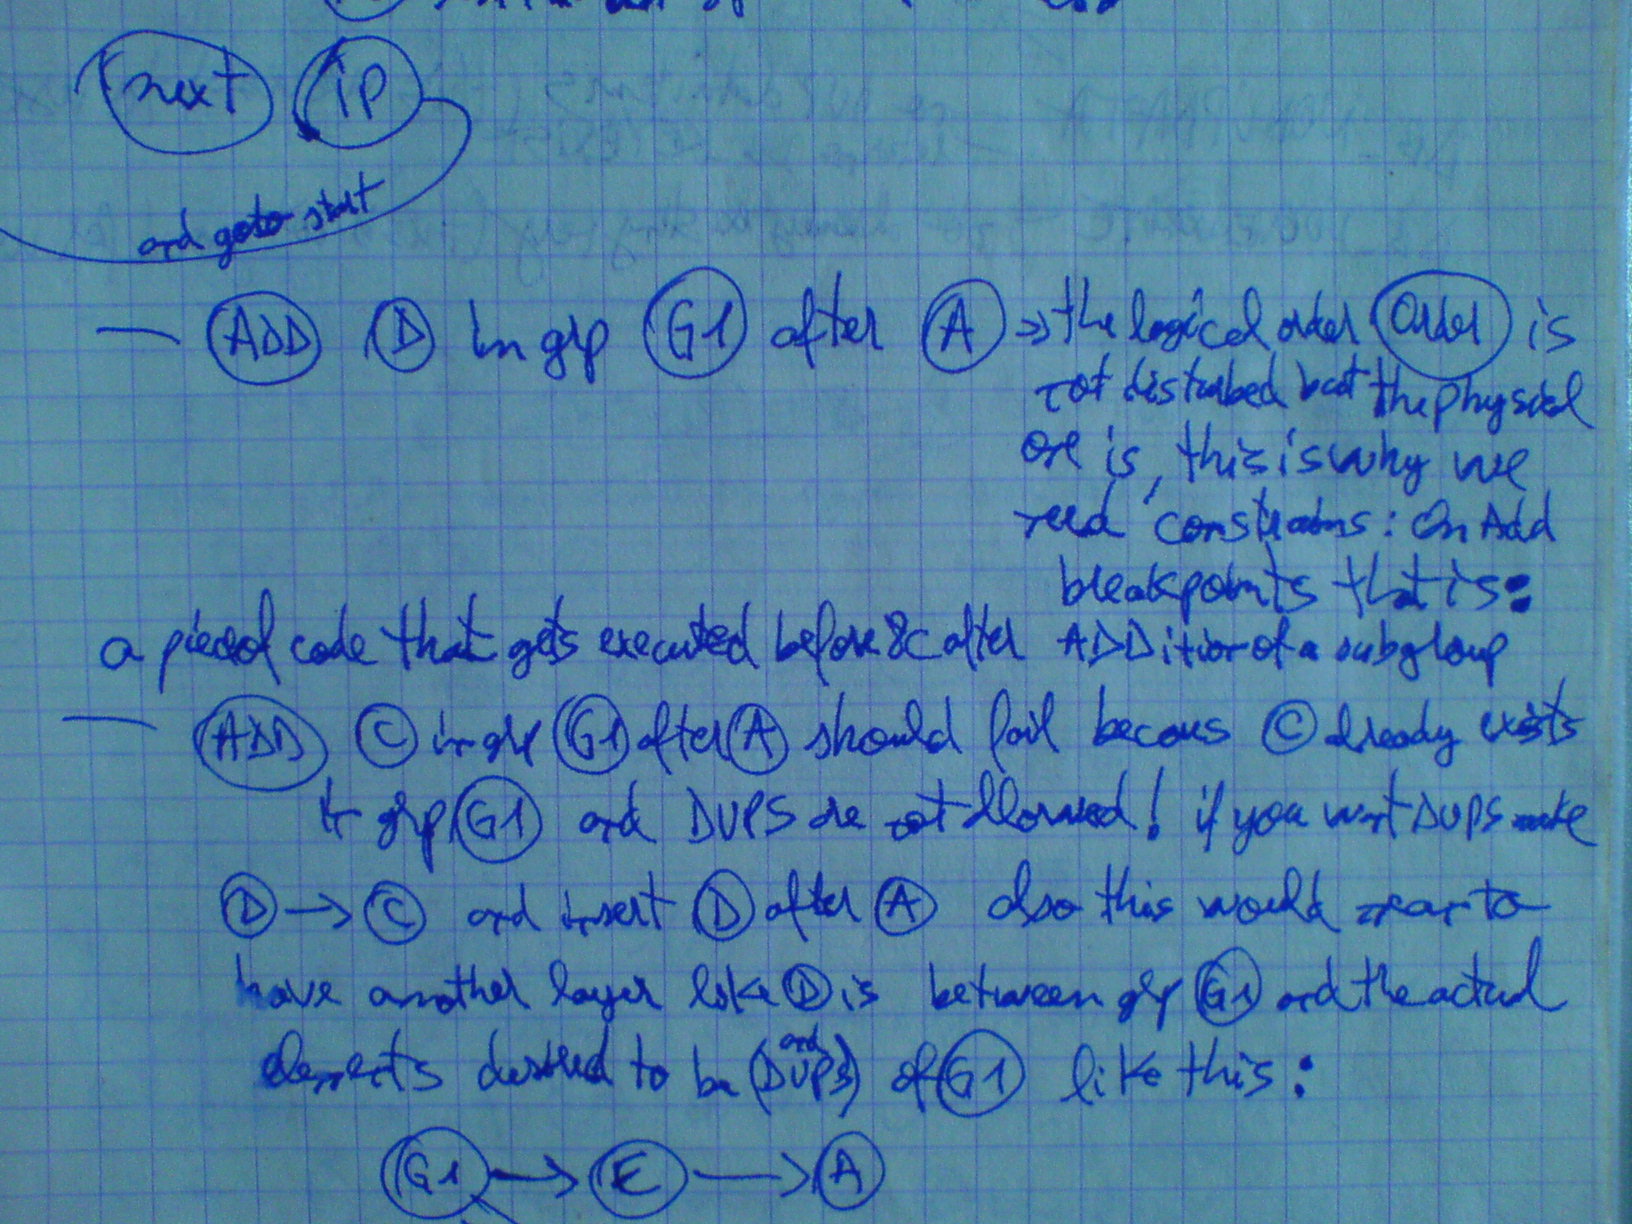 next ip
and goto start
— ADD D in grp G1 after A => the logical order order is
not disturbed but the physical
one is, this is why we
need constrains: On Add
breakpoints that is:
a piece of code that gets executed before & after ADDition of a subgroup
— ADD C in grp G1 after A should fail becaus C already exists
in grp G1 and DUPS are not allowed! if you want DUPS make
D → C and insert D after A also this would mean to
have another layer like D is between grp G1 and the actual
elements desired to be (and DUPS) of G1 like this:
G1 → E → A